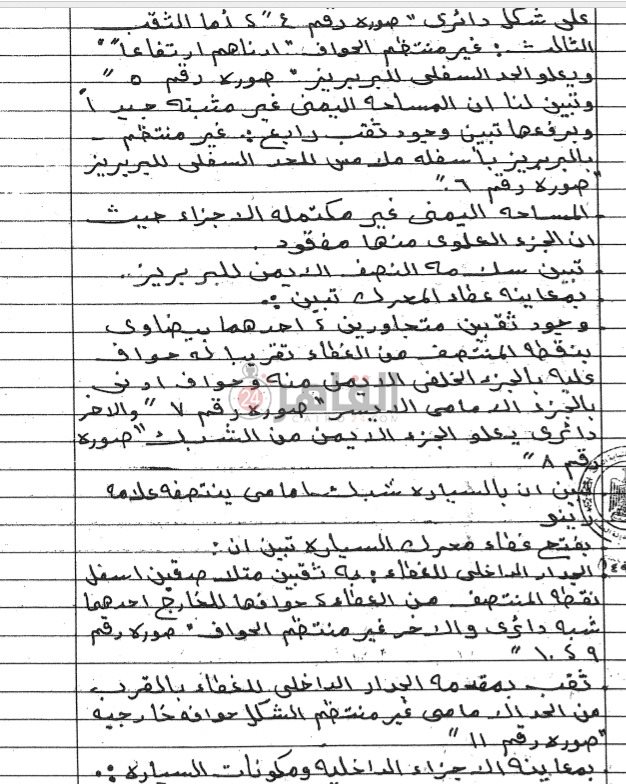 على شكل دائرى "صوره رقم ٤ ، ٤" أما الثقب
الثالث : غير منتظم الحواف "ادناهم ارتفاعاً"
ويعلو الحد السفلى للبربريز "صوره رقم ٥"
وتبين لنا ان المساحه اليمنى غير مثبته جيداً
وبرفعها تبين وجود ثقب رابع : غير منتظم
بالبربريز بأسفله ملامس للحد السفلى للبربريز
"صوره رقم ٦"
المساحه اليمنى غير مكتمله الاجزاء حيث
ان الجزء العلوى منها مفقود .
تبين سلامه النصف الايمن للبربريز .
بمعاينه غطاء المحرك تبين :
وجود ثقبين متجاورين ، احدهما بيضاوى
بنقطه المنتصف من الغطاء تقريبا له حواف
عليه بالجزء الخلفى الايمن منه وحواف ادنى
بالجزء الامامى الايسر "صوره رقم ٧" والاخر
دائرى يعلو الجزء الايمن من الشبك "صوره
رقم ٨"
تبين ان بالسياره شبك امامى ينتصفه علامه
رينو
بفتح غطاء محرك السياره تبين ان :
الجدار الداخلى للغطاء : به ثقبين متلاصقين اسفل
نقطه المنتصف من الغطاء ، حوافها للخارج احدهما
شبه دائرى والاخر غير منتظم الحواف "صوره رقم
٩ ، ١٠"
ثقب بمقدمه الجدار الداخلى للغطاء بالقرب
من الحد الامامى غير منتظم الشكل حوافه خارجيه
"صوره رقم ١١"
بمعاينة الاجزاء الداخليه ومكونات السياره :
القاهرة 24